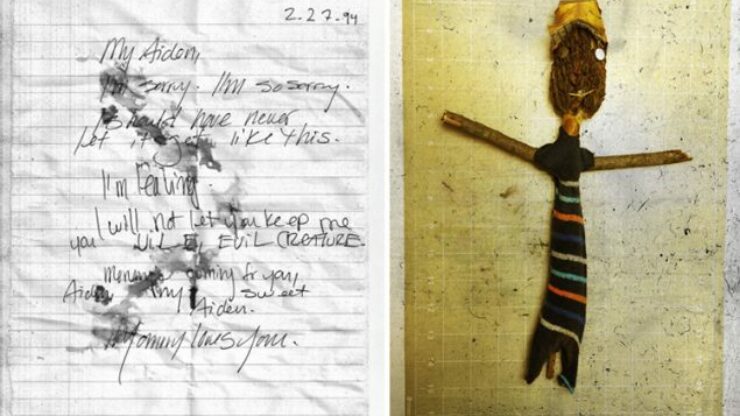 2.27.94
My Aiden,
I'm sorry. I'm so sorry.
I should have never
let it get like this.
I'm leaving.
I will not let you keep me
you VILE, EVIL CREATURE.
coming for you,
Aiden my sweet
Aiden.
Mommy loves you.